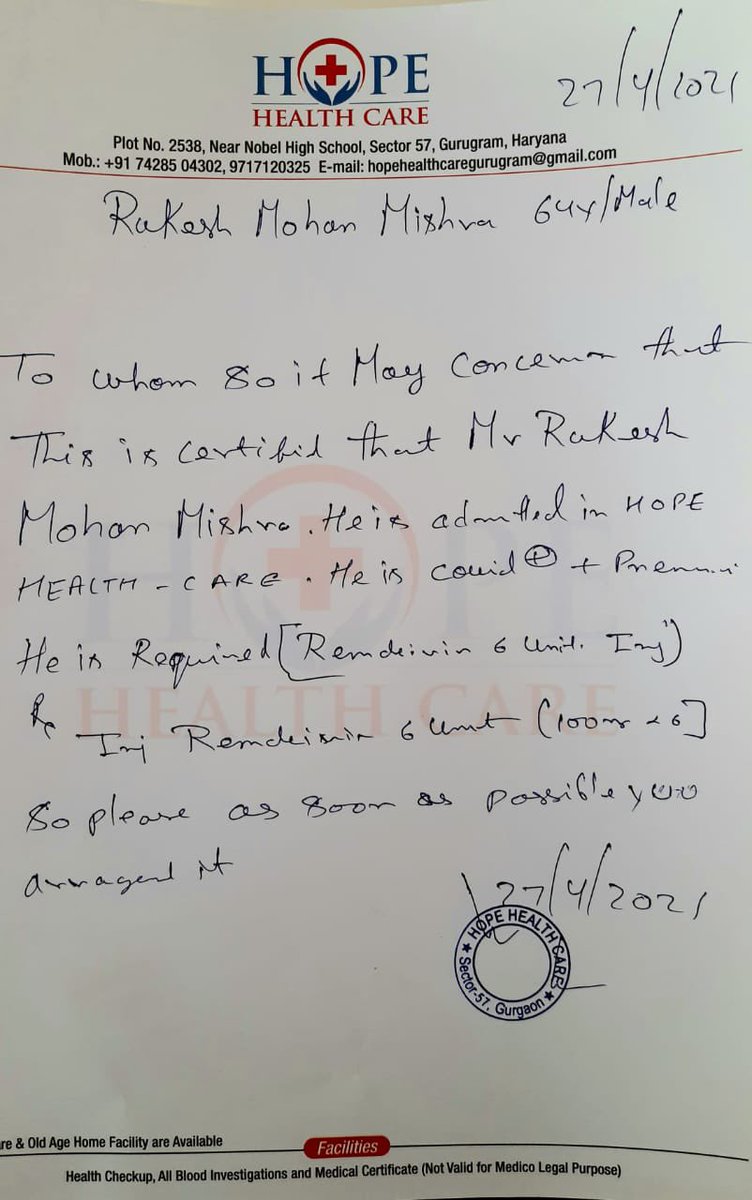 HOPE
HEALTH CARE
27/4/2021
Plot No. 2538, Near Nobel High School, Sector 57, Gurugram, Haryana
Mob.: +91 74285 04302, 9717120325 E-mail: hopehealthcaregurugram@gmail.com
Rakesh Mohan Mishra 64y/Male
To whom so it May Concern that
This is certifid that Mr Rakesh
Mohan Mishra. He is admitted in HOPE
HEALTH-CARE. He is covid ⊕ +
He is Required [Remdeivin 6 Unit. Inj")
Rx
Inj Remdeisvir 6 Unit (100 x 6]
So please as soon as possible you
arraged it
27/4/2021
HOPE HEALTH CARE
★ Sector-57, Gurgaon ★
re & Old Age Home Facility are Available
Facilities
Health Checkup, All Blood Investigations and Medical Certificate (Not Valid for Medico Legal Purpose)